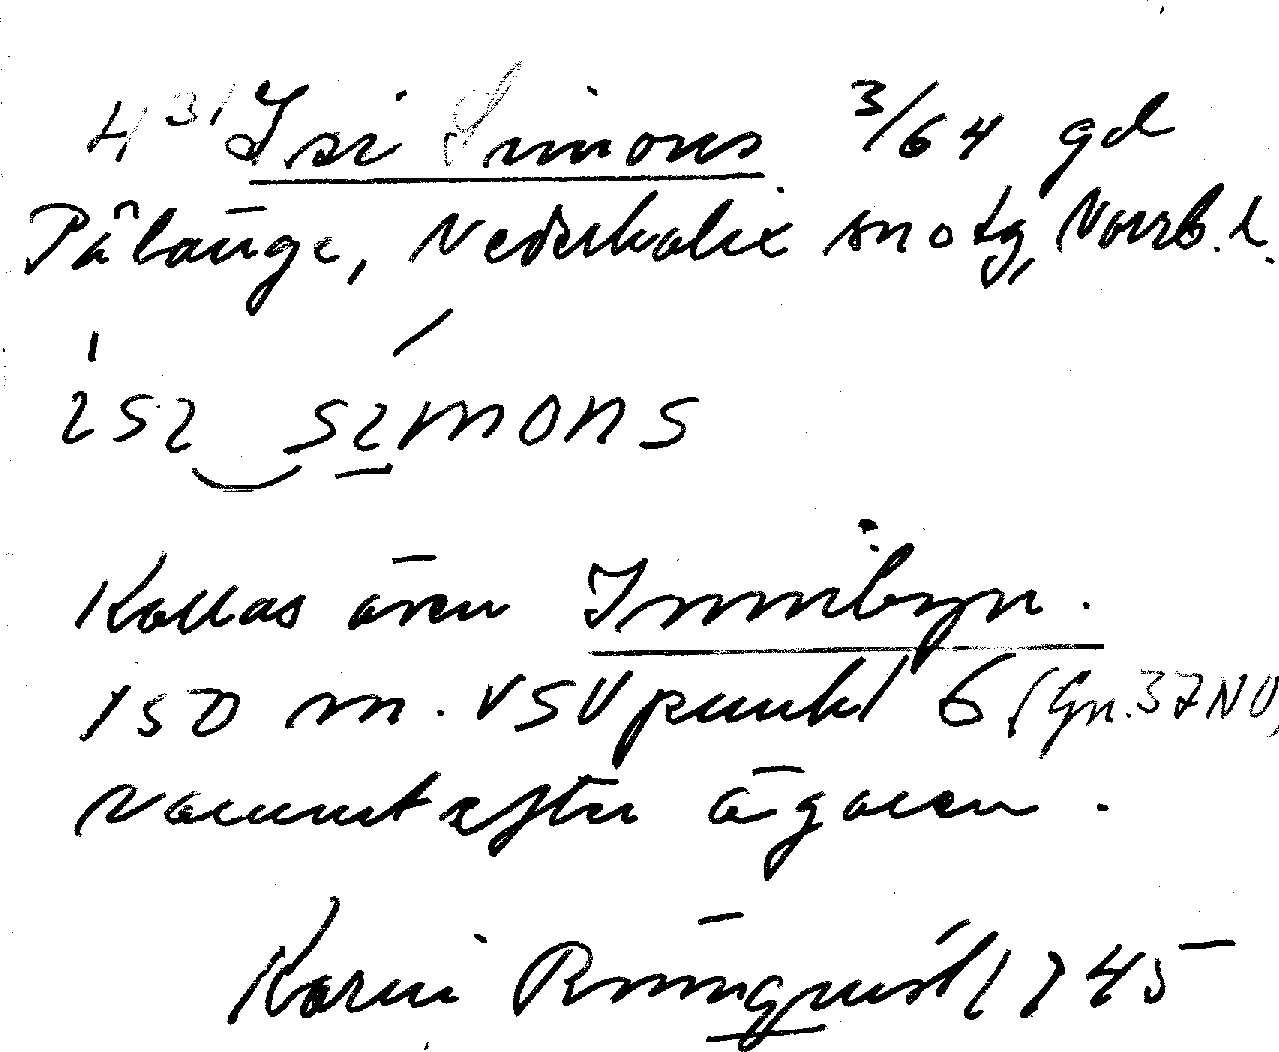 4³¹ Isi Simons 3/64 gd
Pålänge, Nederkalix sn o tg, Norrb. l.
ısı sımons
Kallas även Innibyn.
150 m. VSV punkt 6 (Gn. 37 NO,
namnet efter ägaren.
Karin Rönnquist 1945